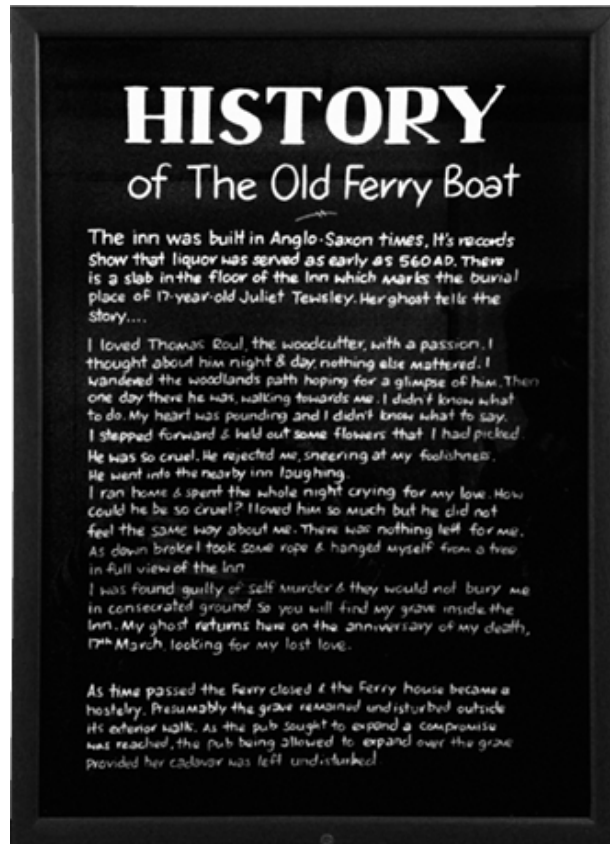 HISTORY
of The Old Ferry Boat
The inn was built in Anglo-Saxon times, It's records
show that liquor was served as early as 560 AD. There
is a slab in the floor of the Inn which marks the burial
place of 17-year-old Juliet Tewsley. Her ghost tells the
story....
I loved Thomas Roul, the woodcutter, with a passion. I
thought about him night & day, nothing else mattered. I
wandered the woodlands path hoping for a glimpse of him. Then
one day there he was, walking towards me. I didn't know what
to do. My heart was pounding and I didn't know what to say.
I stepped forward & held out some flowers that I had picked.
He was so cruel. He rejected me, sneering at my foolishness.
He went into the nearby inn laughing.
I ran home & spent the whole night crying for my love. How
could he be so cruel? I loved him so much but he did not
feel the same way about me. There was nothing left for me.
As dawn broke I took some rope & hanged myself from a tree
in full view of the Inn
I was found guilty of self murder & they would not bury me
in consecrated ground. So you will find my grave inside the
Inn. My ghost returns here on the anniversary of my death,
17th March, looking for my lost love.
As time passed the Ferry closed & the Ferry house became a
hostelry. Presumably the grave remained undisturbed outside
its exterior walls. As the pub sought to expand a compromise
was reached, the pub being allowed to expand over the grave
provided her cadavar was left undisturbed.